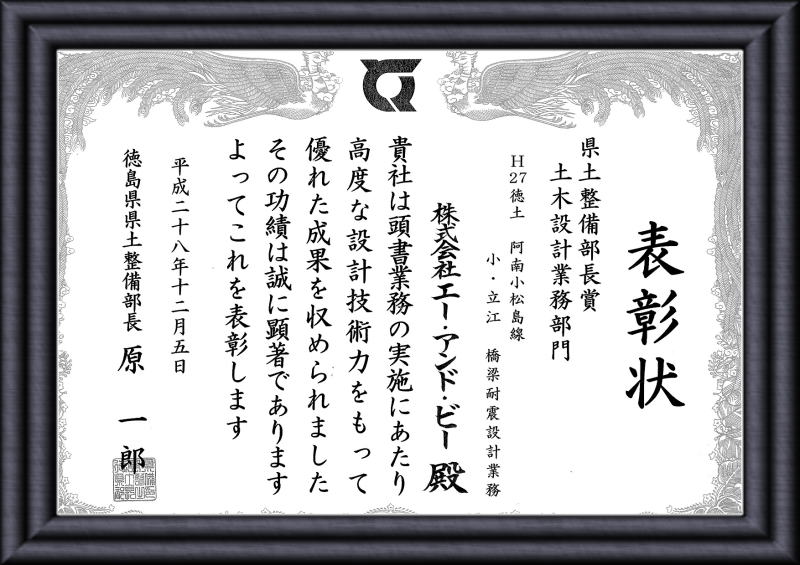 表彰状
県土整備部長賞
土木設計業務部門
H27徳土 阿南小松島線
小・立江 橋梁耐震設計業務
株式会社エー・アンド・ビー 殿
貴社は頭書業務の実施にあたり
高度な設計技術力をもって
優れた成果を収められました
その功績は誠に顕著であります
よってこれを表彰します
平成二十八年十二月五日
徳島県県土整備部長 原 一郎